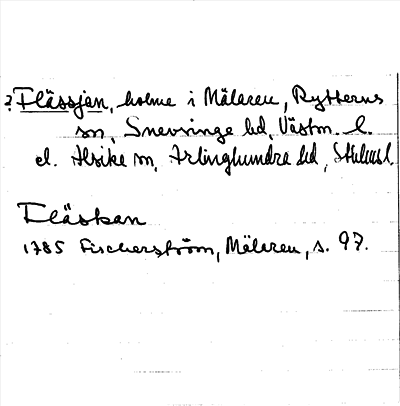 ? Flässjan, holme i Mälaren, Rytterns
sn, Snevringe hd, Västm. l.
el. Alsike sn, Ärlinghundra hd, Sthlms l.
Fläskan
1785 Fischerström, Mälaren, s. 97.